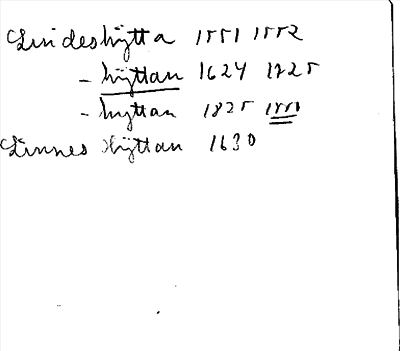 Lindeshytta 1551 1552
- hyttan 1624 1725
- hyttan 1825 1551
Linnes hyttan 1630